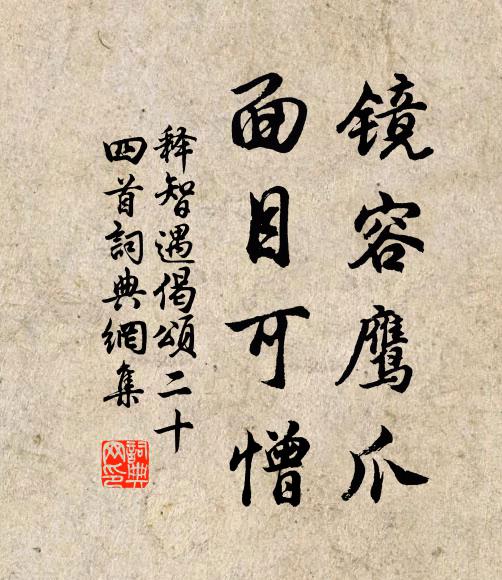 镜容鹰爪
面目可憎
释智遇偈颂二十
四首詞典網集
詞典
网印